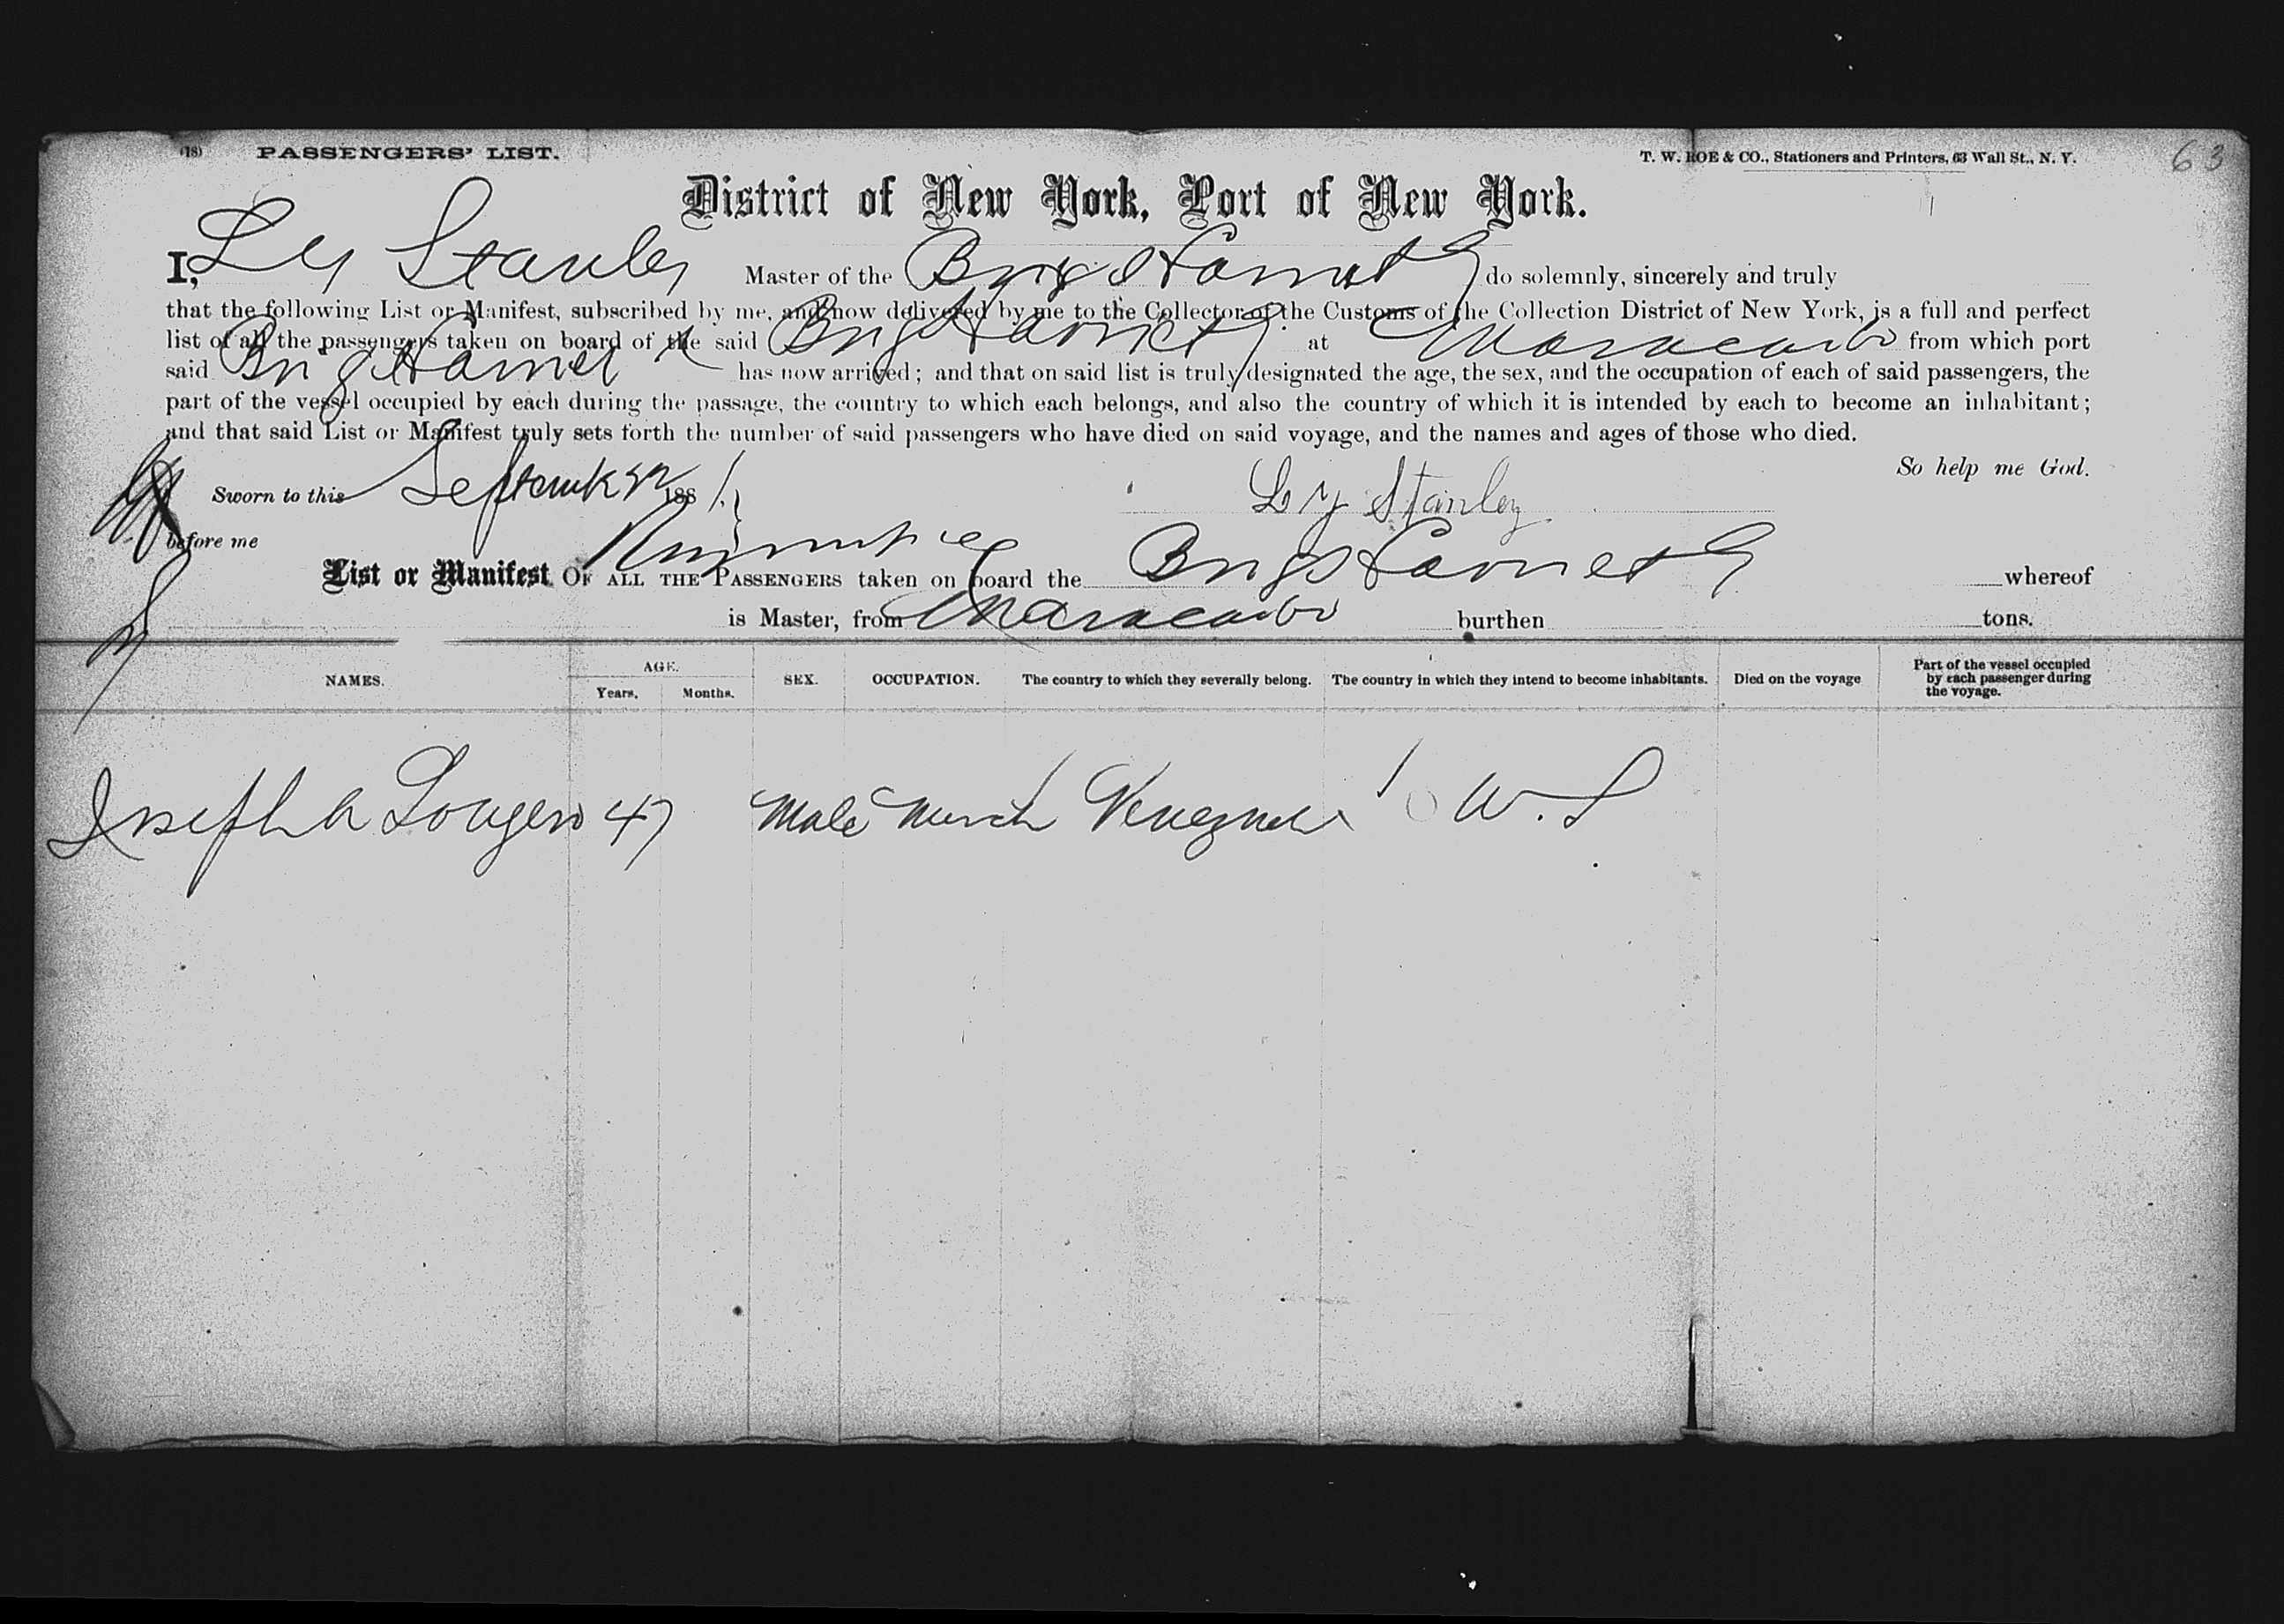 (18) PASSENGERS' LIST. T. W. ROE & CO., Stationers and Printers, 63 Wall St., N. Y. 63
District of New York, Port of New York.
I, Ly Stanley Master of the Brig Harriet G do solemnly, sincerely and truly
that the following List or Manifest, subscribed by me, and now delivered by me to the Collector of the Customs of the Collection District of New York, is a full and perfect
list of all the passengers taken on board of the said Brig Harriet G at Maracaibo from which port
said Brig Harriet G has now arrived; and that on said list is truly designated the age, the sex, and the occupation of each of said passengers, the
part of the vessel occupied by each during the passage, the country to which each belongs, and also the country of which it is intended by each to become an inhabitant;
and that said List or Manifest truly sets forth the number of said passengers who have died on said voyage, and the names and ages of those who died.
So help me God.
Sworn to this September 188 1. Ly Stanley
before me
List or Manifest OF ALL THE PASSENGERS taken on board the Brig Harriet G whereof
is Master, from Maracaibo burthen tons.
NAMES. AGE. Years. Months. SEX. OCCUPATION. The country to which they severally belong. The country in which they intend to become inhabitants. Died on the voyage Part of the vessel occupied by each passenger during the voyage.
Joseph A 47 Male Merch Venezuela U. S